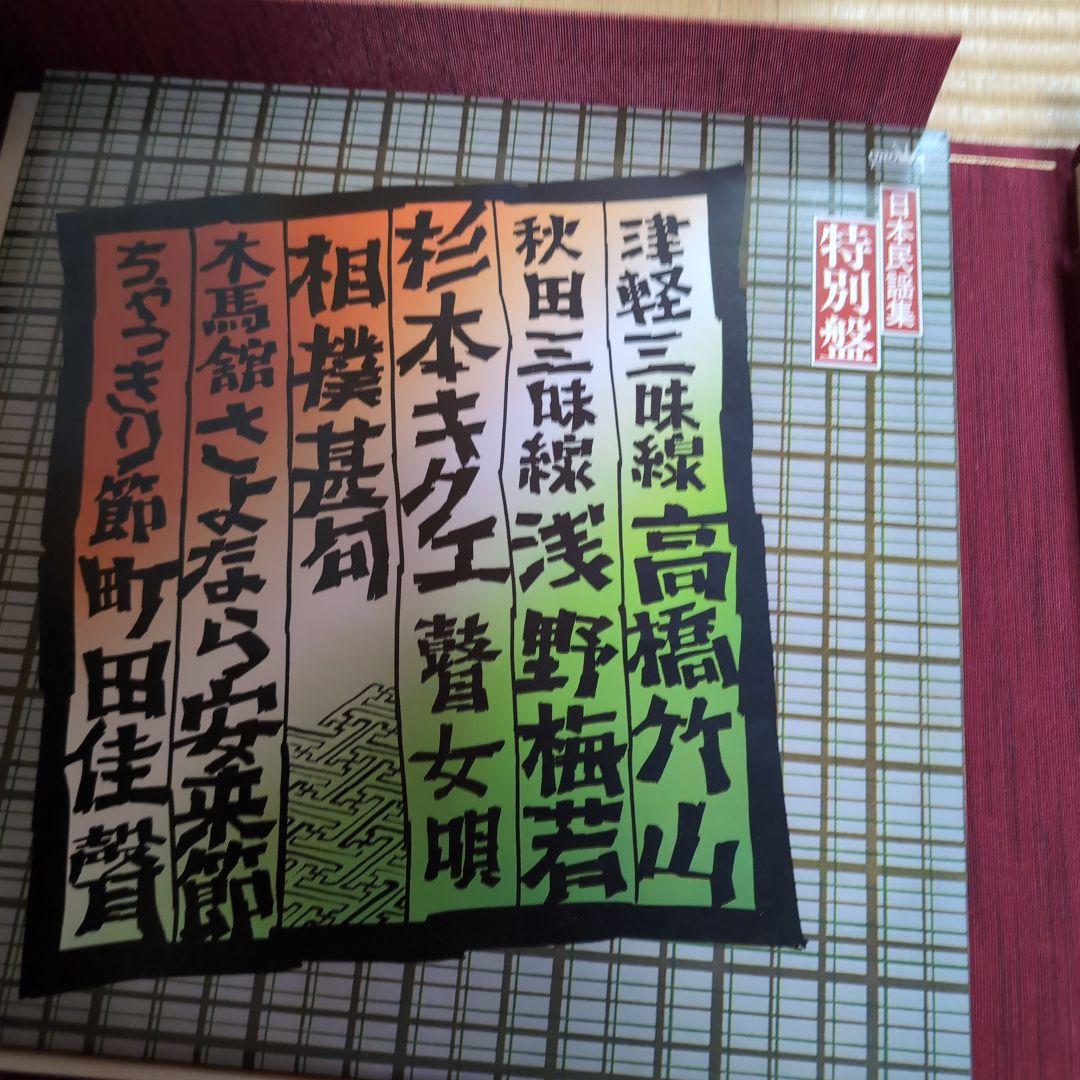 CROWN
日本民謡集
特別盤
津軽三味線 高橋竹山
秋田三味線 浅野梅若
杉本キクエ 瞽女唄
相撲甚句
木馬舘さよなら安来節
ちゃっきり節 町田佳聲